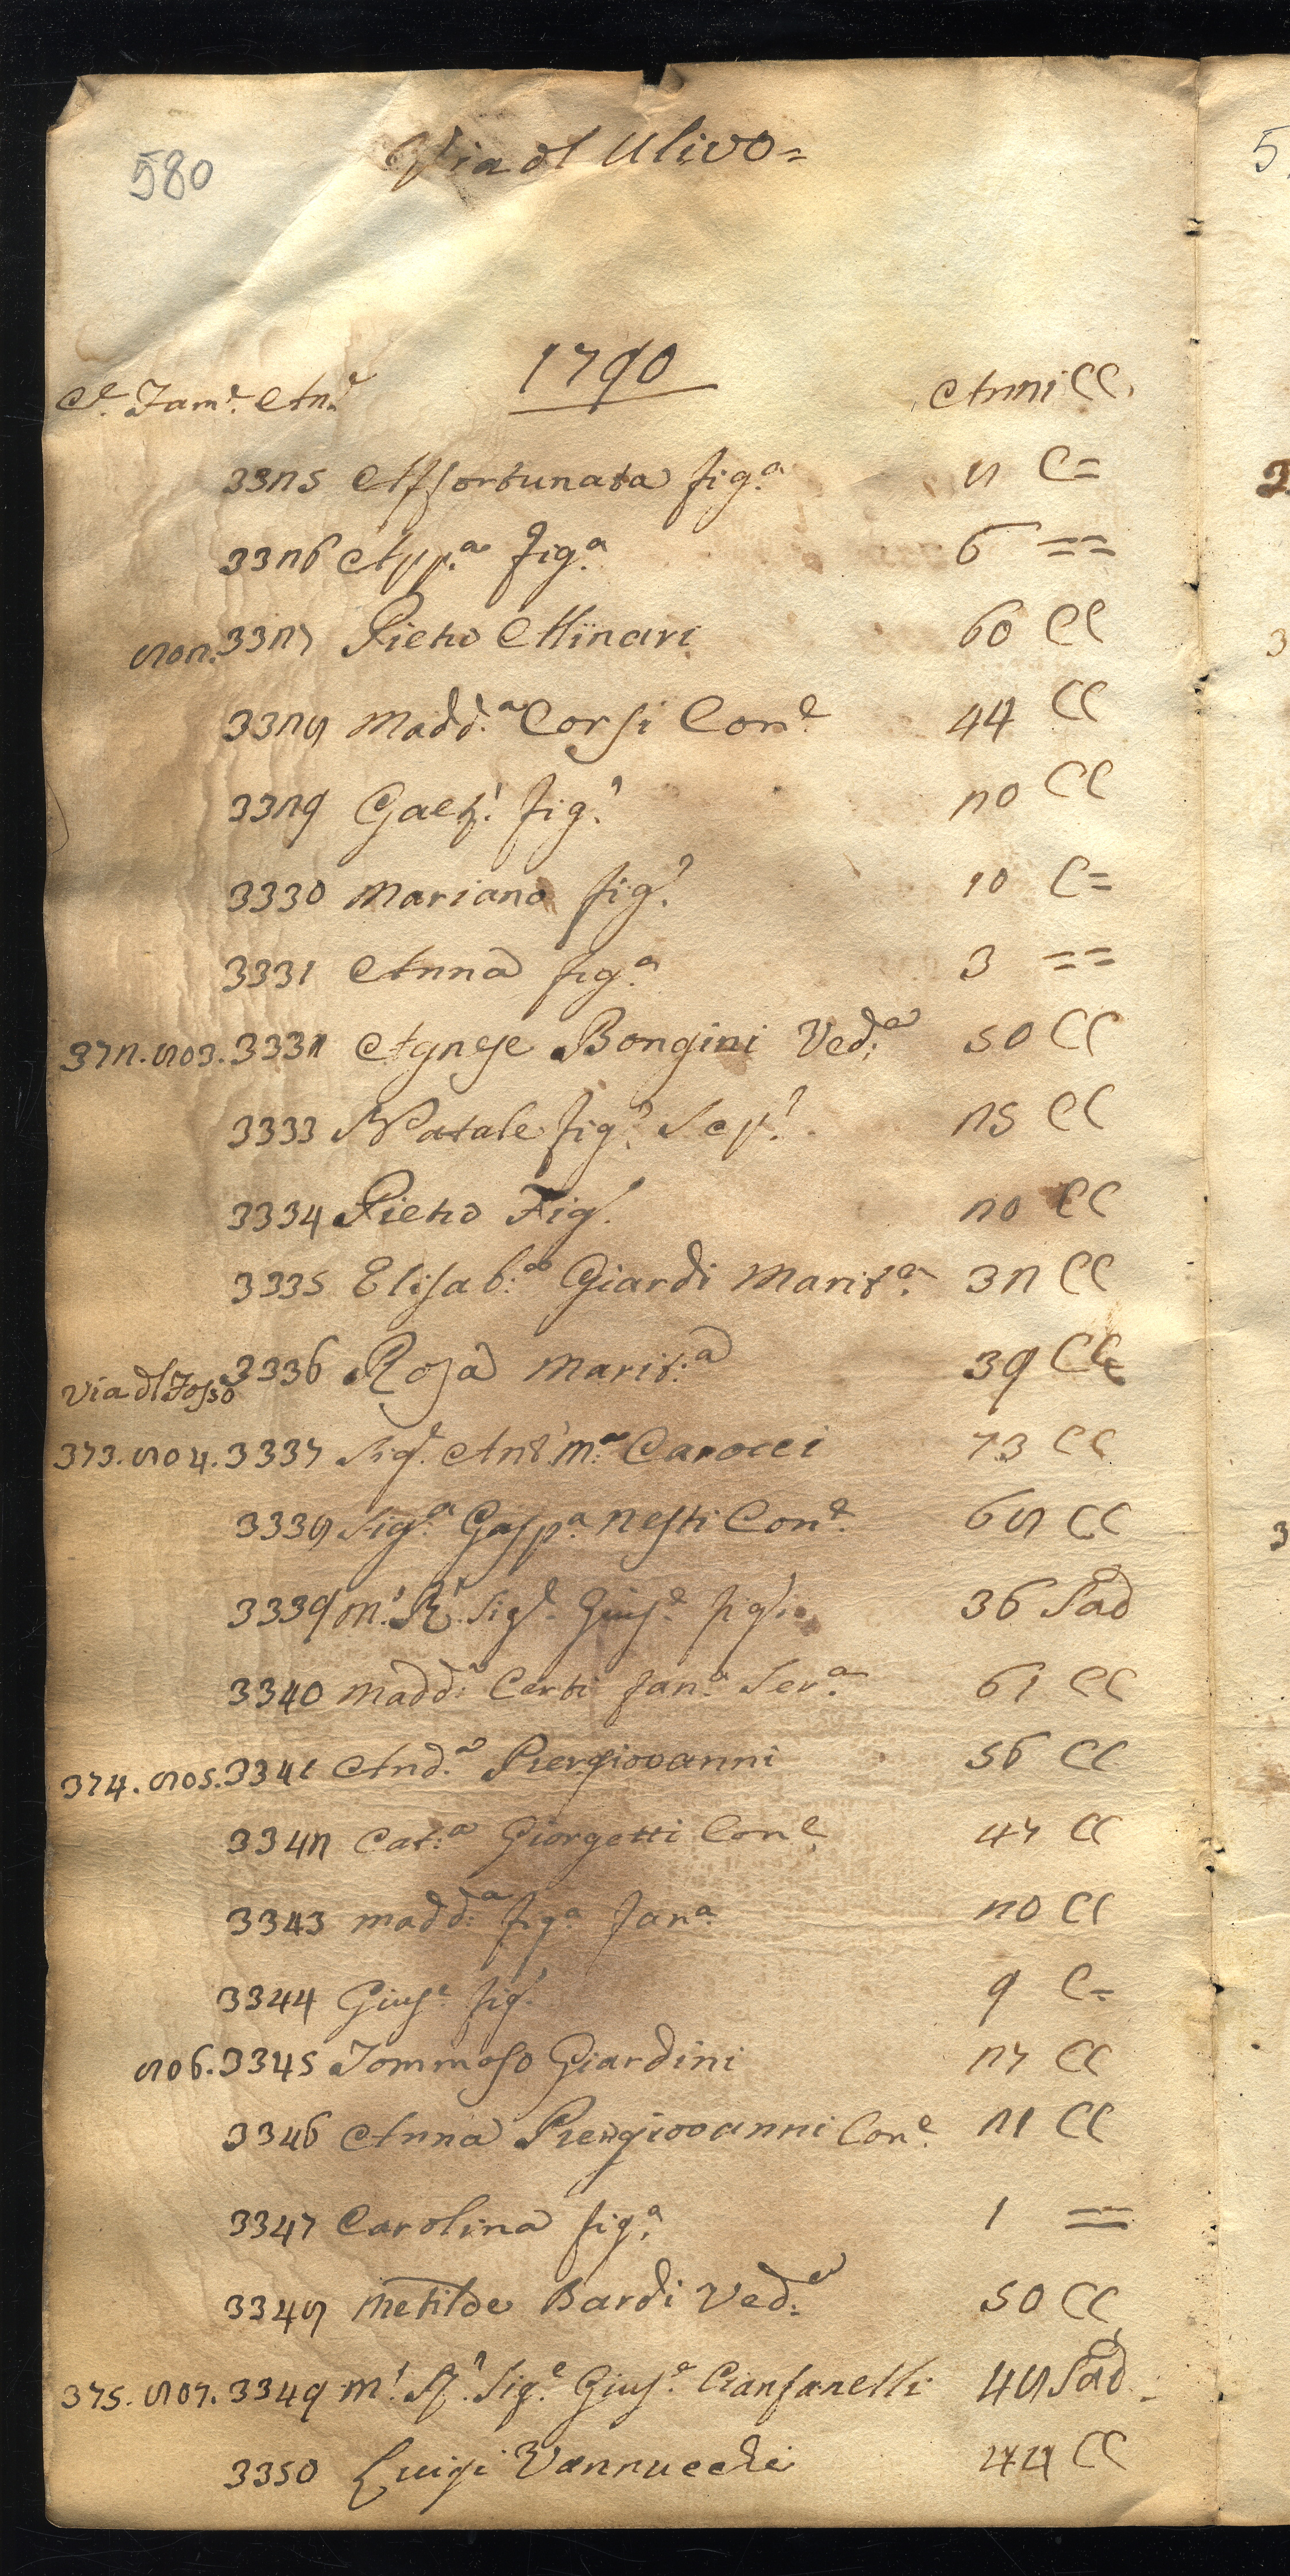 580
Via dl Ulivo=
1790
Ce. Fam.e An.e Anni CC.
3325 Affortunata fig.a 8 C=
3326 App.a fig.a 6 ==
802. 3327 Pietro Minari 60 CC
3328 Madd.a Corsi Con.e 44 CC
3329 Gaet.o fig.o 20 CC
3330 Mariano fig.o 10 C=
3331 Anna fig.a 3 ==
372. 803. 3332 Agnese Bongini Ved.a 50 CC
3333 Natale fig.o Scp.o 25 CC
3334 Pietro Fig.o 20 CC
3335 Elisab.a Giardi Marit.a 32 CC
3336 Rosa Marit.a 39 CC
Via dl Fosso
373. 804. 3337 Sig.e Ant.o M.a Carocci 73 CC
3338 Sig.a Gasp.a Nesti Con.e 68 CC
3339 M.o R.o Sig.e Gius.e figlio 36 Sad
3340 Madd.a Corti fan.a Ser.a 61 CC
374. 805. 3341 And.a Piergiovanni 56 CC
3342 Cat.a Giorgetti Con.e 47 CC
3343 Madd.a fig.a fan.a 20 CC
3344 Gius.e fig.o 9 C=
806. 3345 Tommaso Giardini 27 CC
3346 Anna Piergiovanni Con.e 21 CC
3347 Carolina fig.a 1 ==
3348 Metilde Bardi Ved.a 50 CC
375. 807. 3349 M.o R.o Sig.e Gius.e Cianfanelli 48 Sad.
3350 Luigi Vannucchi 44 CC